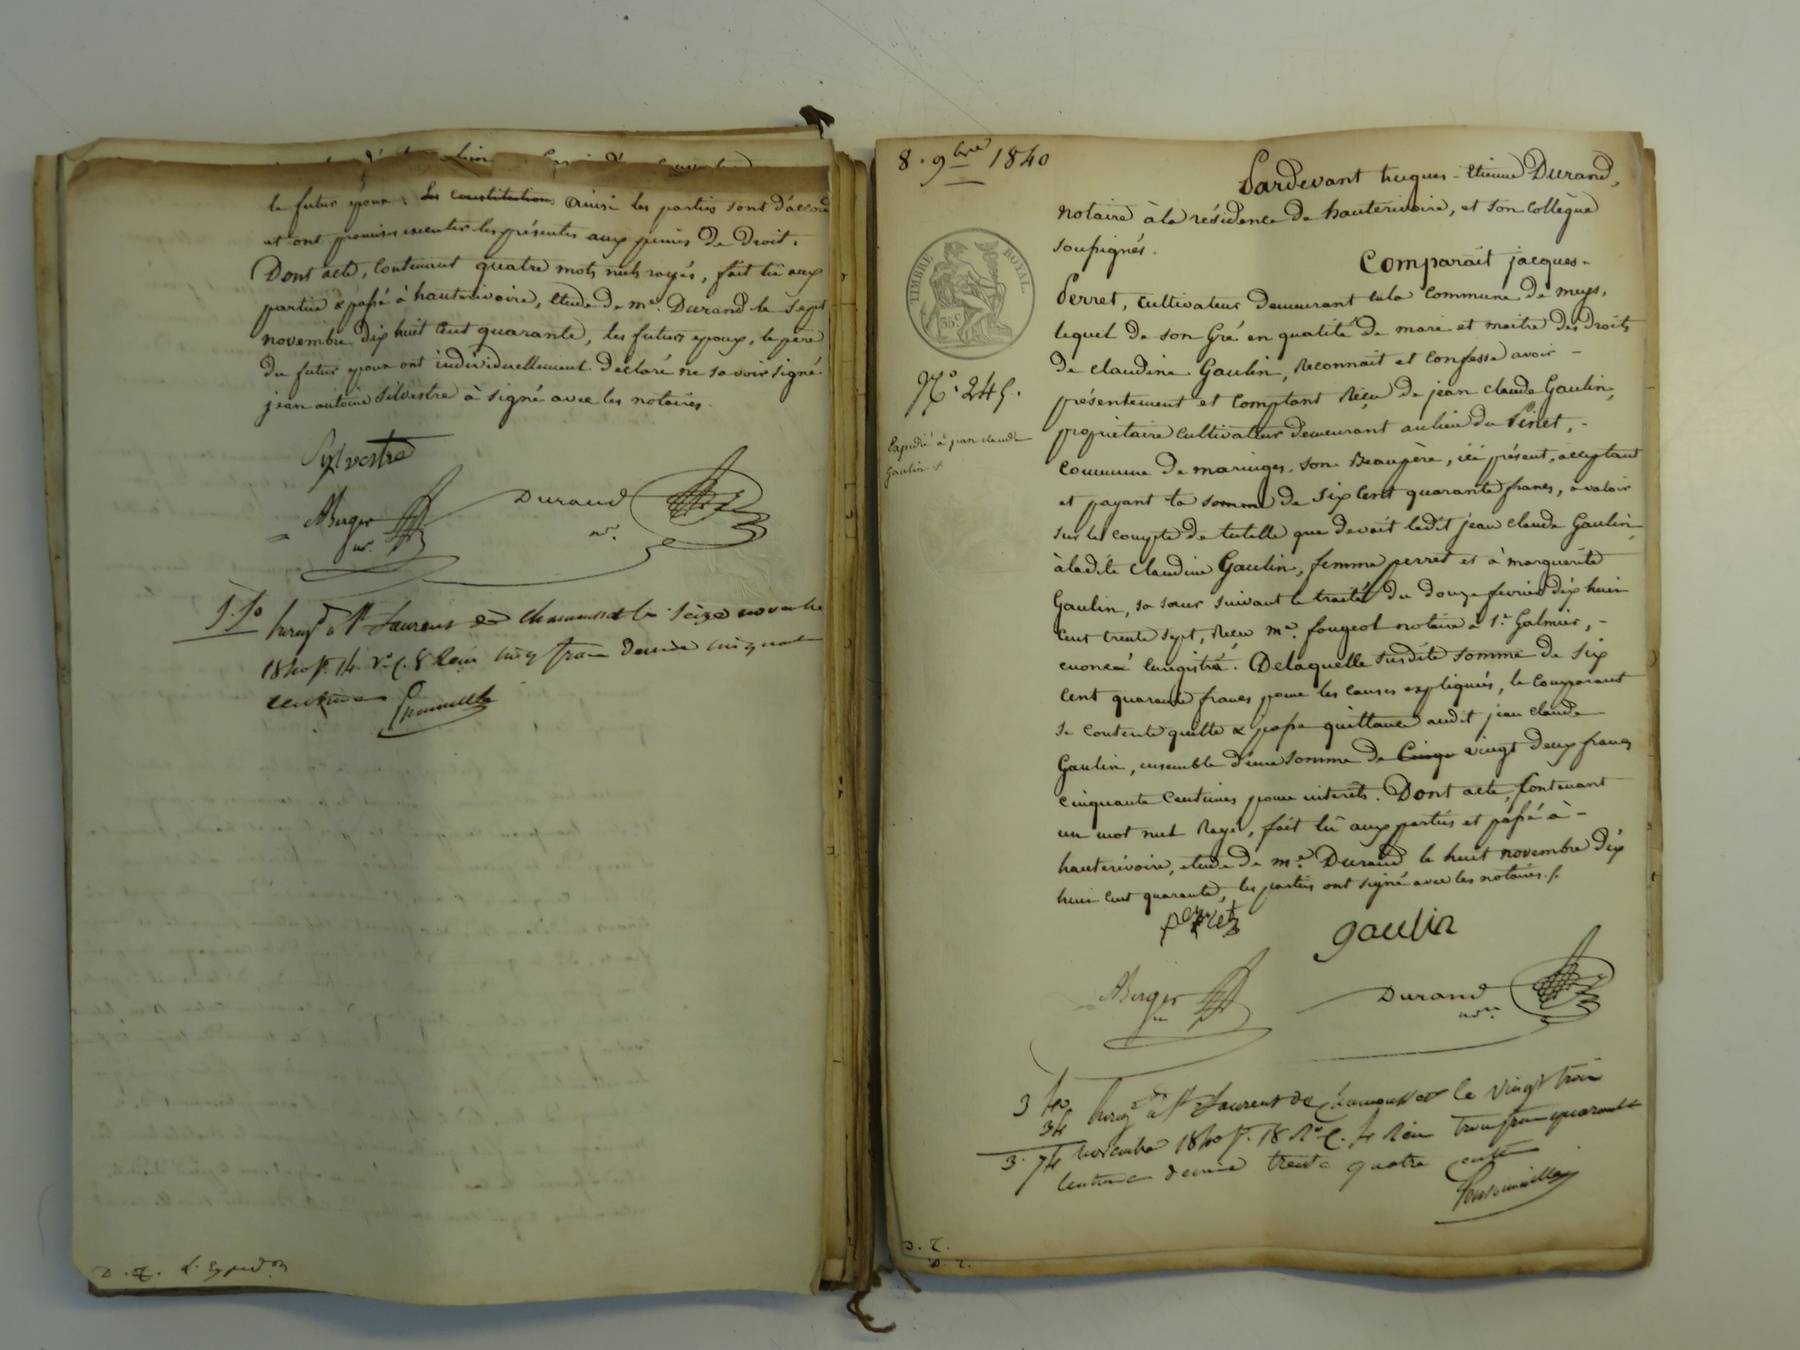 le futur époux. Les constitutions Ainsi les parties sont d'accord
et ont promis executer les présentes aux peines de Droit.
Dont acte, Contenant quatre mots nuls rayés, fait lû aux
parties & passé à hauterivoire, étude de me. Durand le sept
novembre dix huit cent quarante, les futurs epoux, le père
du futur epoux ont individuellement déclaré ne savoir signé
jean antoine silvestre à signé avec les notaires.
Sylvestre
ABerger
nre.
Durand
nre.
5.50
Enregé à St Laurent de Chamousset le seize novembre
1840 fo. 14. Vo. C. 8 Reçu cinq francs décime cinquante
centimes
D. T. L. Expedon
8. 9bre 1840
Pardevant hugues-etienne Durand,
notaire à la résidence de hauterivoire, et son collègue
soussignés.
Comparait jacques-
Perret, cultivateur demeurant en la commune de meys,
lequel de son Gré en qualité de mari et maitre des Droits
de claudine Gaulin, Reconnait et confesse avoir -
présentement et comptant Reçu de jean claude Gaulin,
propriétaire cultivateur demeurant au lieu du Pinet, -
commune de maringes, son Beaupère, ici présent, acceptant
et payant la somme de six cent quarante francs, a valoir
sur le compte de tutelle que devait ledit jean claude Gaulin,
à ladite claudine Gaulin, femme perret et à marguerite
Gaulin, sa sœur suivant le traité du douze fevrier dix huit
cent trente sept, Reçu me. fougerol notaire à St. Galmier, -
enoncé Enregistré. De laquelle susdite somme de six
cent quarante francs pour les causes expliquées, le comparant
se contente quitte & passe quittance audit jean claude
Gaulin, ensemble d'une somme de Cinqu vingt deux francs
cinquante centimes pour interêts. Dont acte, Contenant
un mot nul Rayé, fait lû aux parties et passé à -
hauterivoire, etude de me. Durand le huit novembre dix
huit cent quarante, les parties ont signé avec les notaires./.
TIMBRE ROYAL.
35 c
No. 245.
Expédié à jean claude
Gaulin
perret
gaulin
ABerger
nre
Durand
nore.
3 40
34
3.74
Enregé à St Laurent de Chamousset le vingt trois
novembre 1840 fo. 18 Ro C. 4 Reçu trois francs quarante
centimes décime trente quatre cent
D. T.
D. T.